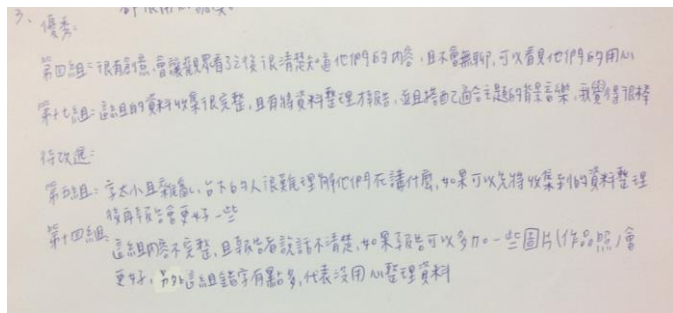 3、優秀:
第四組=很有創意,會讓觀眾看了之後很清楚知道他們的內容,且不會無聊,可以看見他們的用心
第十七組=這組的資料收集很完整,且有將資料整理才報告,並且搭配適合主題的背景音樂,我覺得很棒
待改進:
第五組:字太小且雜亂,台下的人很難理解他們在講什麼,如果可以先將收集到的資料整理
後再報告會更好一些
第十四組 這組內容不完整,且報告者說話不清楚,如果報告可以多加一些圖片(作品照)會
更好,另外這組錯字有點多,代表沒用心整理資料